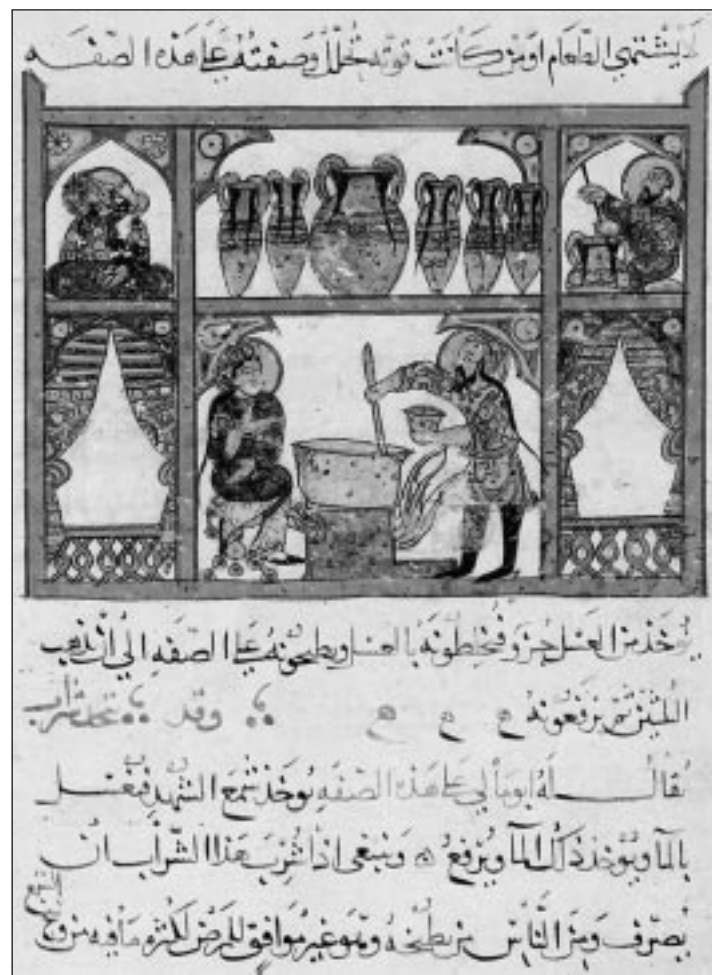 لا يشتهي الطعام او من كانت قوته تحلل وصفته على هذه الصفه
يوخذ من العسل جزو فيخلطونه بالعسل ويطبخونه على الصفه الي أن يذهب
ثم يرفعونه وقد يتخذ شراب
يقال له على هذه الصفه يوخذ شمع الشهد فيغسل
بالمآ ويوخذ ذلك المآ ويرفع وينبغي اذا شرب هذا الشراب ان
يصرف ومن النّاس من يطبخه وهو غير موافق للمرضى لكثره ما فيه من